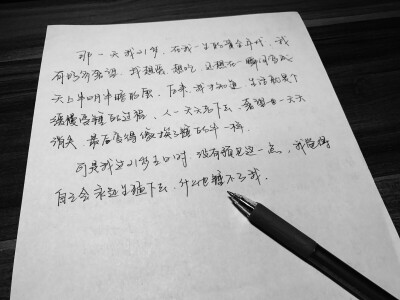 那一天我21岁，在我一生的黄金年代，我
有好多奢望，我想爱，想吃，还想在一瞬间变成
天上半明半暗的云，后来，我才知道，生活就是个
缓慢受锤的过程，人一天天老下去，奢望也一天天
消失，最后变得像挨了锤的牛一样。
可是我过21岁生日时，没有预见这一点，我觉得
自己会永远生猛下去，什么也锤不了我。